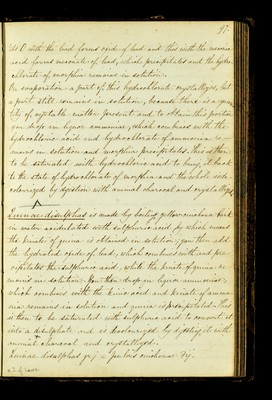 97.
its O with the lead forms oxide of lead and this with the meconic
acid forms meconate of lead, which precipitates and the hydro
chlorate of morphia remains in solution.
On evaporation a part of this hydrochlorate crystallizes, but
a part still remains in solution, because there is a quan
tity of vegetable matter present and to obtain this portion
you drop in liquor ammoniae, which combines with the
hydrochloric acid and hydrochlorate of ammonia re-
mains in solution and morphia precipitates. This is then
to be saturated with hydrochloric acid to bring it back
to the state of hydrochlorate of morphia and the whole is de-
colourized by digestion with animal charcoal and crystallized
Quinae disulphas is made by boiling yellow cinchona bark
in water acidulated with sulphuric acid by which means
the kinate of quina is obtained in solution; you then add
the hydrated oxide of lead, which combines with and pre-
cipitates the sulphuric acid, while the kinate of quina re-
mains in solution. You then drop in liquor ammoniae,
which combines with the kinic acid and kinate of ammo-
nia remains in solution and quina is precipitated. This
is then to be saturated with sulphuric acid to convert it
into a disulphate and is decolourized by digesting it with
animal charcoal and crystallized.
Quinae disulphas gr.j = pulvis cinchonae